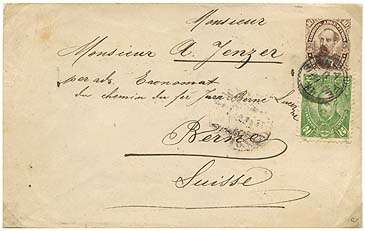 Monsieur
Monsieur A. Jenzer
per adr. Economat
du chemin du fer Jura Berne Lucerne
Berne
Suisse